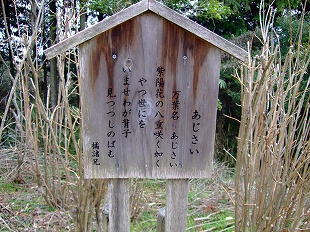 あじさい
万葉名 あじさい
紫陽花の八重咲く如く
やつ世にを
いませわが背子
見つつしのばも
橘諸兄